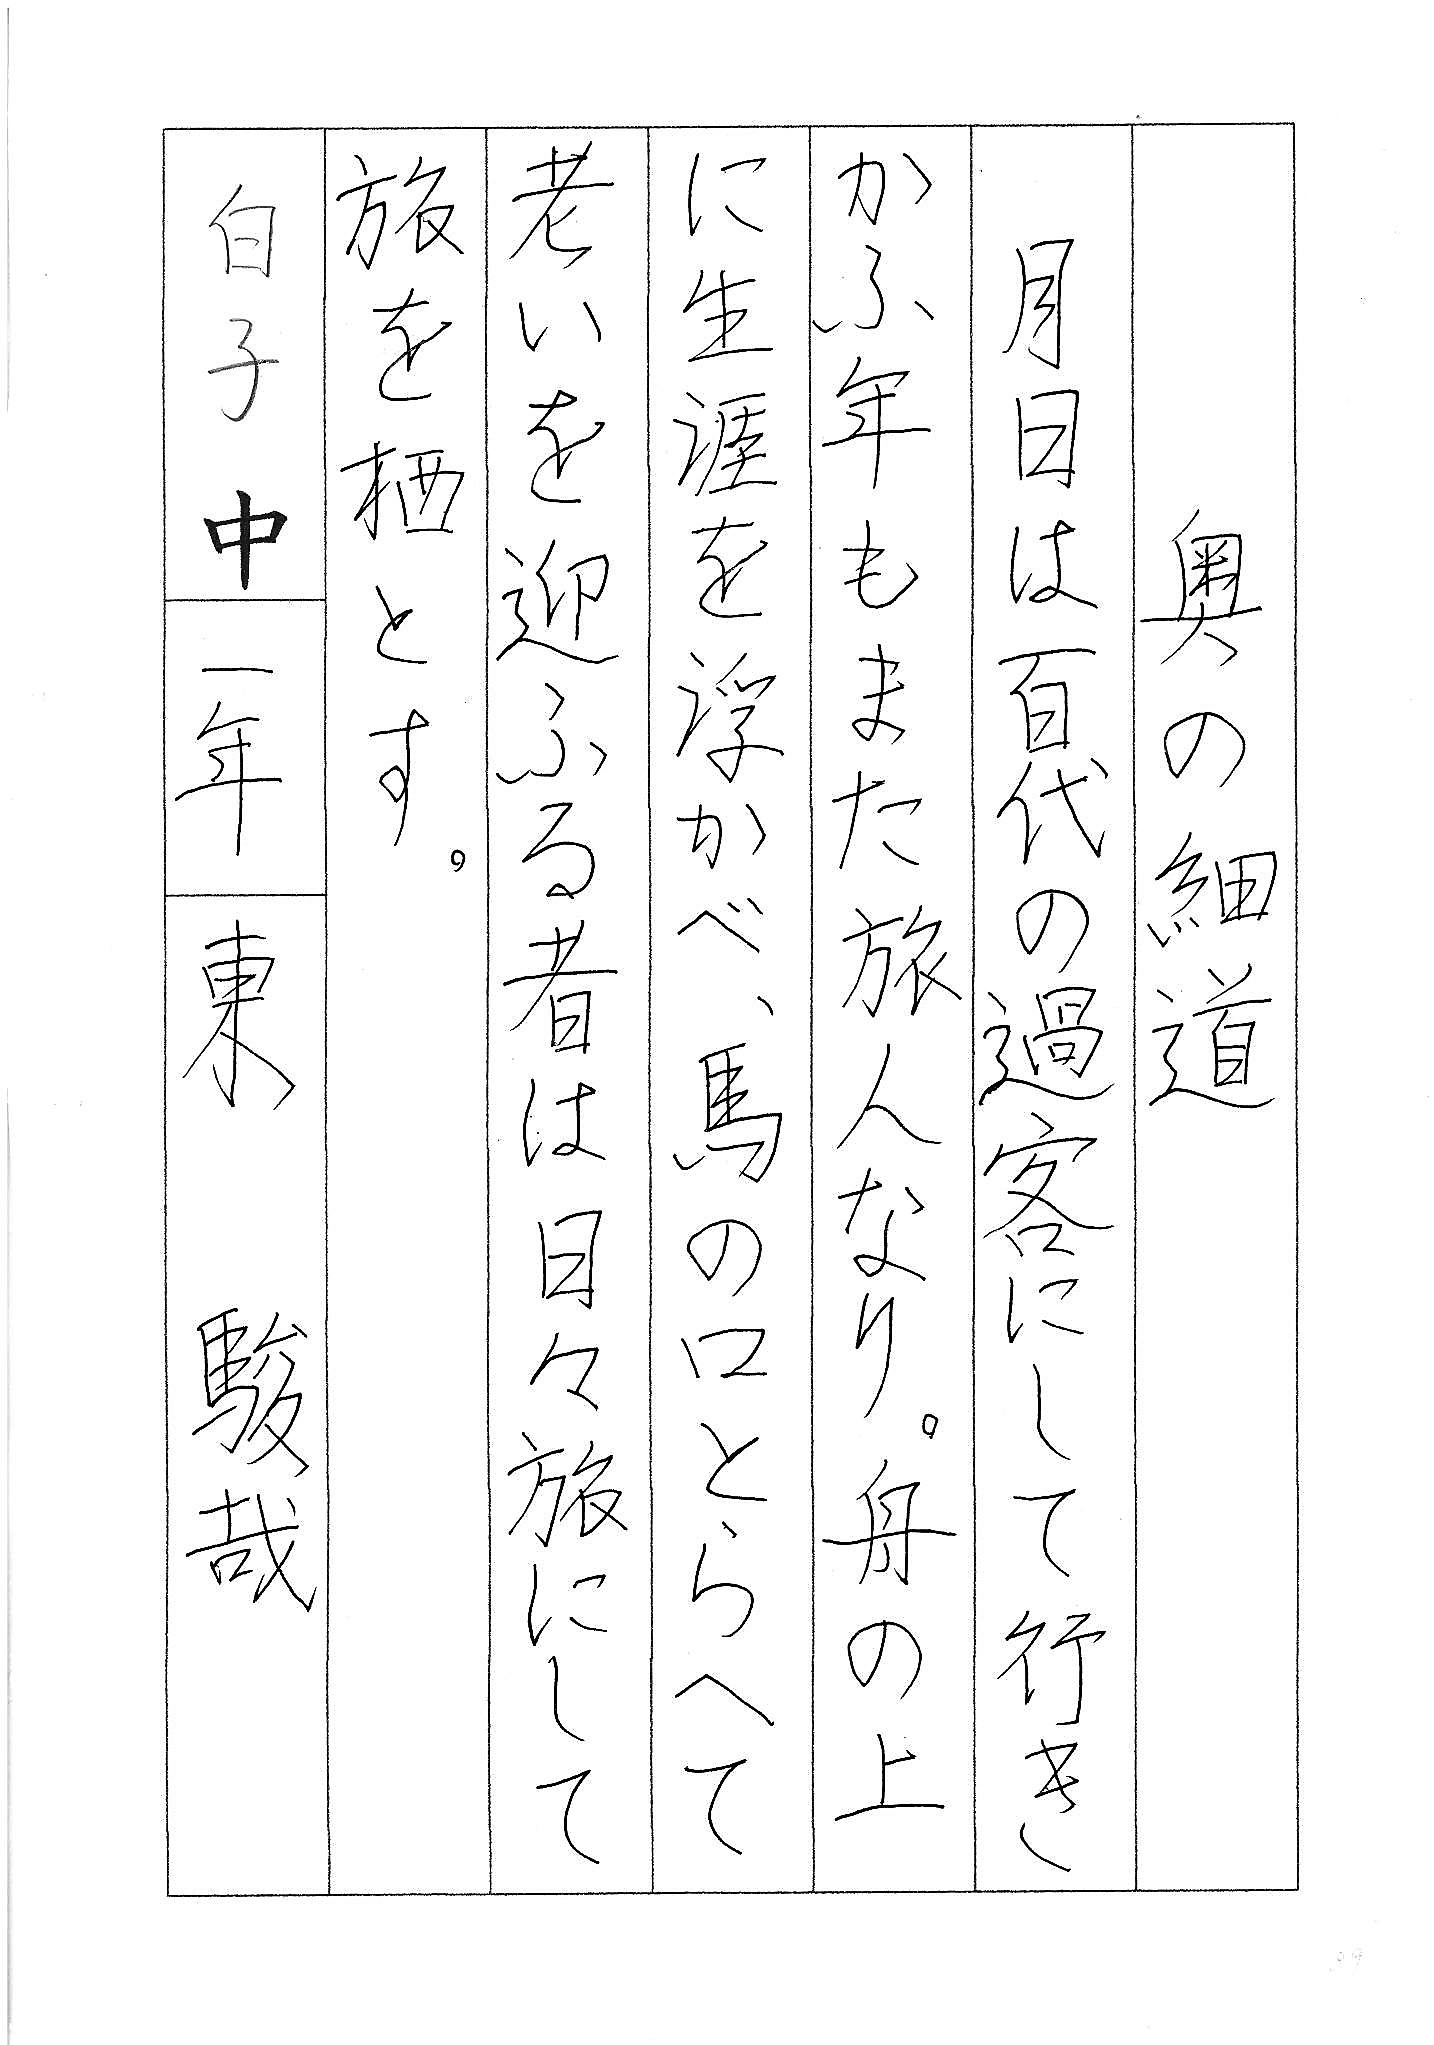 奥の細道
月日は百代の過客にして行き
かふ年もまた旅人なり。舟の上
に生涯を浮かべ、馬の口とらへて
老いを迎ふる者は日々旅にして
旅を栖とす。
白子中 一年 東 駿哉